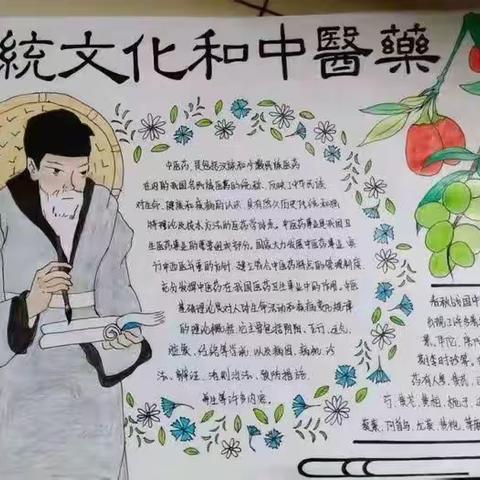 統文化和中醫藥
中医药，是包括汉族和少数民族医药
在内的我国各民族医药的统称，反映了中华民族
对生命、健康和疾病的认识，具有悠久历史传统和独
特理论及技术方法的医药学体系。中医药事业是我国卫
生医药事业的重要组成部分。国家大力发展中医药事业，实
行中西医并重的方针，建立符合中医药特点的管理制度，
充分发挥中医药在我国医药卫生事业中的作用。中医
基础理论是对人对生命活动和疾病变化规律
的理论概括，它主要包括阴阳、五行、运气、
脏象、经络等学说，以及病因、病机、诊
法、辨证、治则治法、预防措施、
养生等许多内容。
春秋战国中
出现了许多